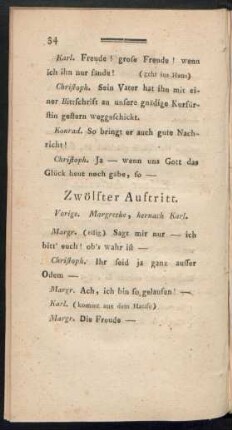 54
Karl. Freude! große Freude! wenn
ich ihn nur fände! (geht ins Haus)
Christoph. Sein Vater hat ihn mit ei-
ner Bittschrift an unsere gnädige Kurfür-
stin gestern weggeschickt.
Konrad. So bringt er auch gute Nach-
richt!
Christoph. Ja — wenn uns Gott das
Glück heut noch gäbe, so —
Zwölfter Auftritt.
Vorige. Margrethe, hernach Karl.
Margr. (eilig) Sagt mir nur — ich
bitt' euch! ob's wahr ist —
Christoph. Ihr seid ja ganz ausser
Odem —
Margr. Ach, ich bin so gelaufen! —
Karl. (kommt aus dem Hause)
Margr. Die Freude —